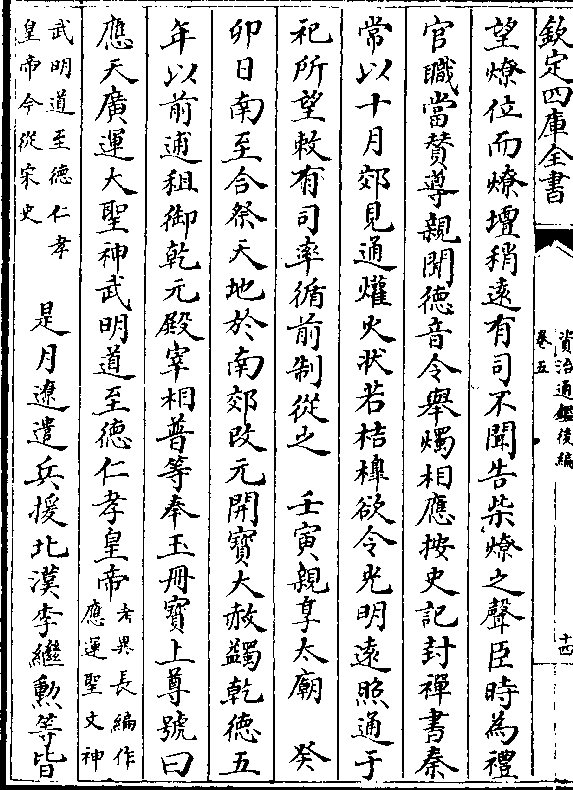 欽定四庫全書
資治通鑑後編
卷五
十四
望燎位而燎壇稍遠有司不聞告柴燎之聲臣時為禮
官職當贊導親聞德音令舉燭相應按史記封禪書秦
常以十月郊見通爟火状若桔槹欲令光明遠照通于
祀所望敕有司率循前制從之　壬寅親享太廟　癸
卯日南至合祭天地於南郊改元開寶大赦蠲乾德五
年以前逋租御乾元殿宰相普等奉玉冊寶上尊號曰
應天廣運大聖神武明道至德仁孝皇帝考異長編作
應運聖文神
武明道至德仁孝
皇帝今從宋史　是月遼遣兵援北漢李繼勲等皆